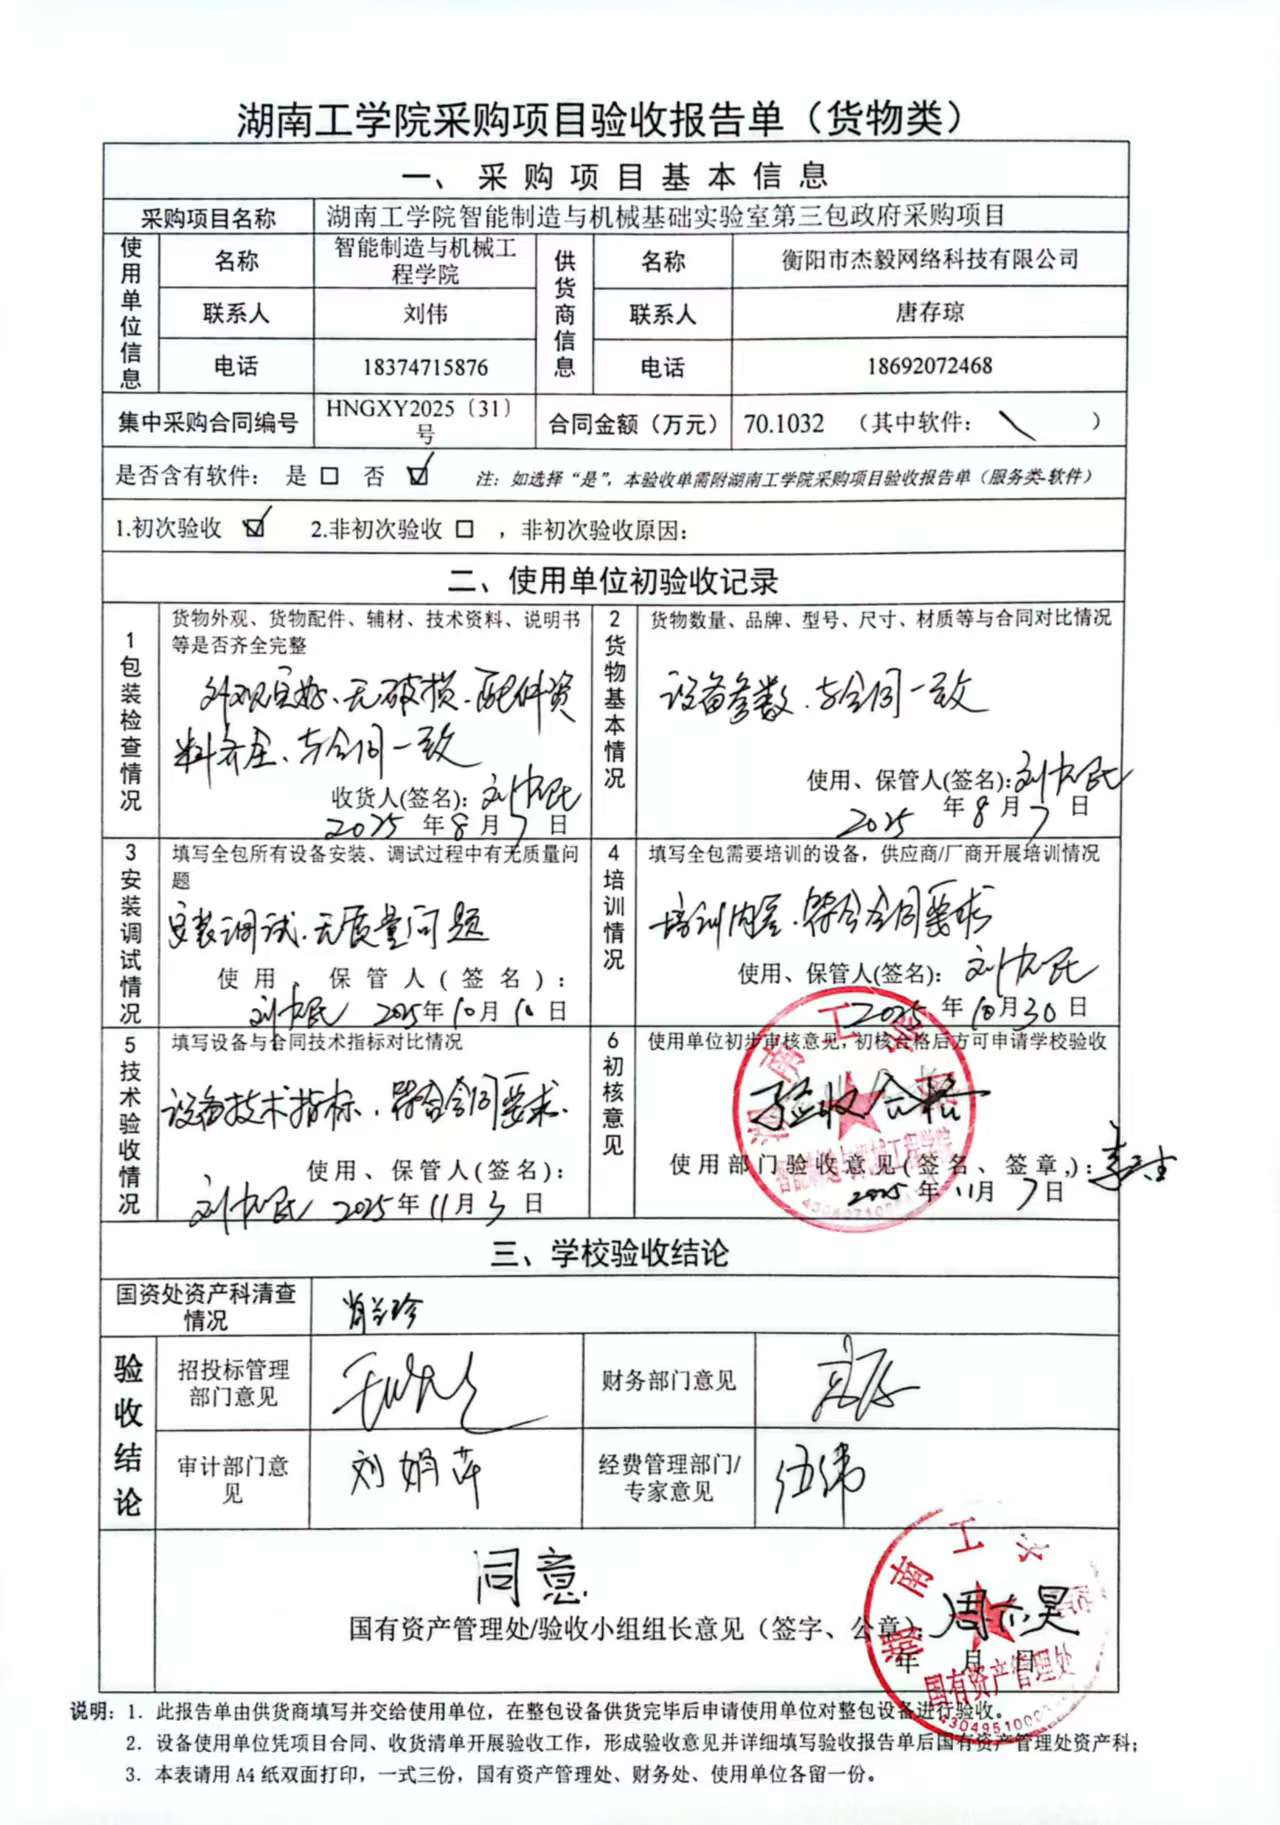 湖南工学院采购项目验收报告单（货物类）
一、采购项目基本信息
采购项目名称 湖南工学院智能制造与机械基础实验室第三包政府采购项目
使用单位信息 名称 智能制造与机械工程学院 供货商信息 名称 衡阳市杰毅网络科技有限公司
联系人 刘伟 联系人 唐存琼
电话 18374715876 电话 18692072468
集中采购合同编号 HNGXY2025〔31〕号 合同金额（万元） 70.1032 （其中软件： ）
是否含有软件： 是 □ 否 ☑ 注：如选择“是”，本验收单需附湖南工学院采购项目验收报告单（服务类-软件）
1.初次验收 ☑ 2.非初次验收 □ ，非初次验收原因：
二、使用单位初验收记录
1 包装检查情况
货物外观、货物配件、辅材、技术资料、说明书
等是否齐全完整
外观完好、无破损、配件资
料齐全、与合同一致
收货人(签名):
2025 年 8 月 7 日
2 货物基本情况
货物数量、品牌、型号、尺寸、材质等与合同对比情况
设备参数、与合同一致
使用、保管人(签名):
2025 年 8 月 7 日
3 安装调试情况
填写全包所有设备安装、调试过程中有无质量问
题
安装调试、无质量问题
使用、保管人(签名):
2025年10月10日
4 培训情况
填写全包需要培训的设备，供应商/厂商开展培训情况
培训内容、符合合同要求
使用、保管人(签名):
2025 年 10月30日
5 技术验收情况
填写设备与合同技术指标对比情况
设备技术指标、符合合同要求.
使用、保管人(签名):
2025年11月3日
6 初核意见
使用单位初步审核意见，初核合格后方可申请学校验收
验收合格
使用部门验收意见(签名、签章,):
2025 年 11月 7日
智能制造与机械工程学院
三、学校验收结论
国资处资产科清查情况
验收结论
招投标管理部门意见 财务部门意见
审计部门意见 刘娟萍 经费管理部门/专家意见 伍伟
同意
国有资产管理处/验收小组组长意见（签字、公章）:
年 月 日
国有资产管理处
说明：1. 此报告单由供货商填写并交给使用单位，在整包设备供货完毕后申请使用单位对整包设备进行验收。
2. 设备使用单位凭项目合同、收货清单开展验收工作，形成验收意见并详细填写验收报告单后国有资产管理处资产科；
3. 本表请用 A4 纸双面打印，一式三份，国有资产管理处、财务处、使用单位各留一份。